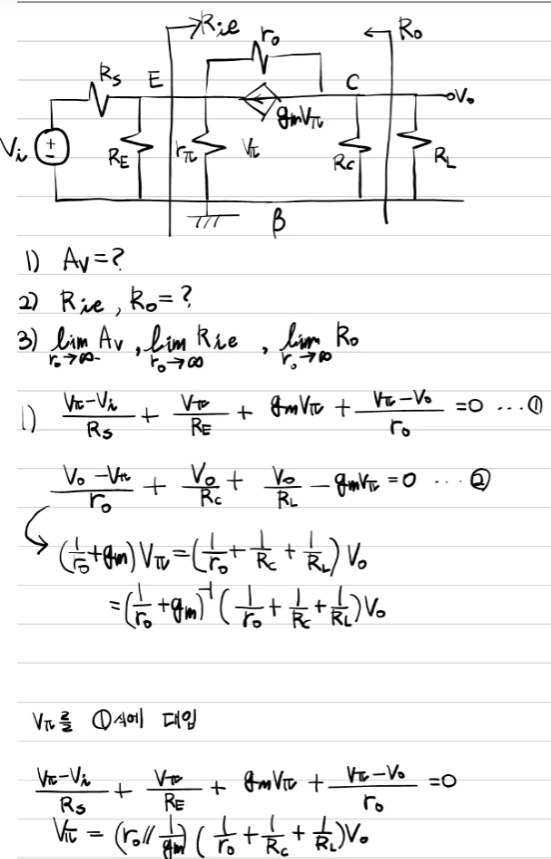 Rie
ro
Ro
Rs
E
C
Vo
gmVπ
Vi
RE
rπ
Vπ
Rc
RL
B
1) Av=?
2) Rie, Ro=?
3) lim Av, lim Rie, lim Ro
ro→∞ ro→∞ ro→∞
1) (Vπ-Vi)/Rs + Vπ/RE + gmVπ + (Vπ-Vo)/ro =0 ...①
(Vo-Vπ)/ro + Vo/Rc + Vo/RL - gmVπ =0 ...②
(1/ro+gm)Vπ=(1/ro+1/Rc+1/RL)Vo
=(1/ro+gm)⁻¹(1/ro+1/Rc+1/RL)Vo
Vπ를 ①식에 대입
(Vπ-Vi)/Rs + Vπ/RE + gmVπ + (Vπ-Vo)/ro =0
Vπ = (ro//1/gm)(1/ro+1/Rc+1/RL)Vo